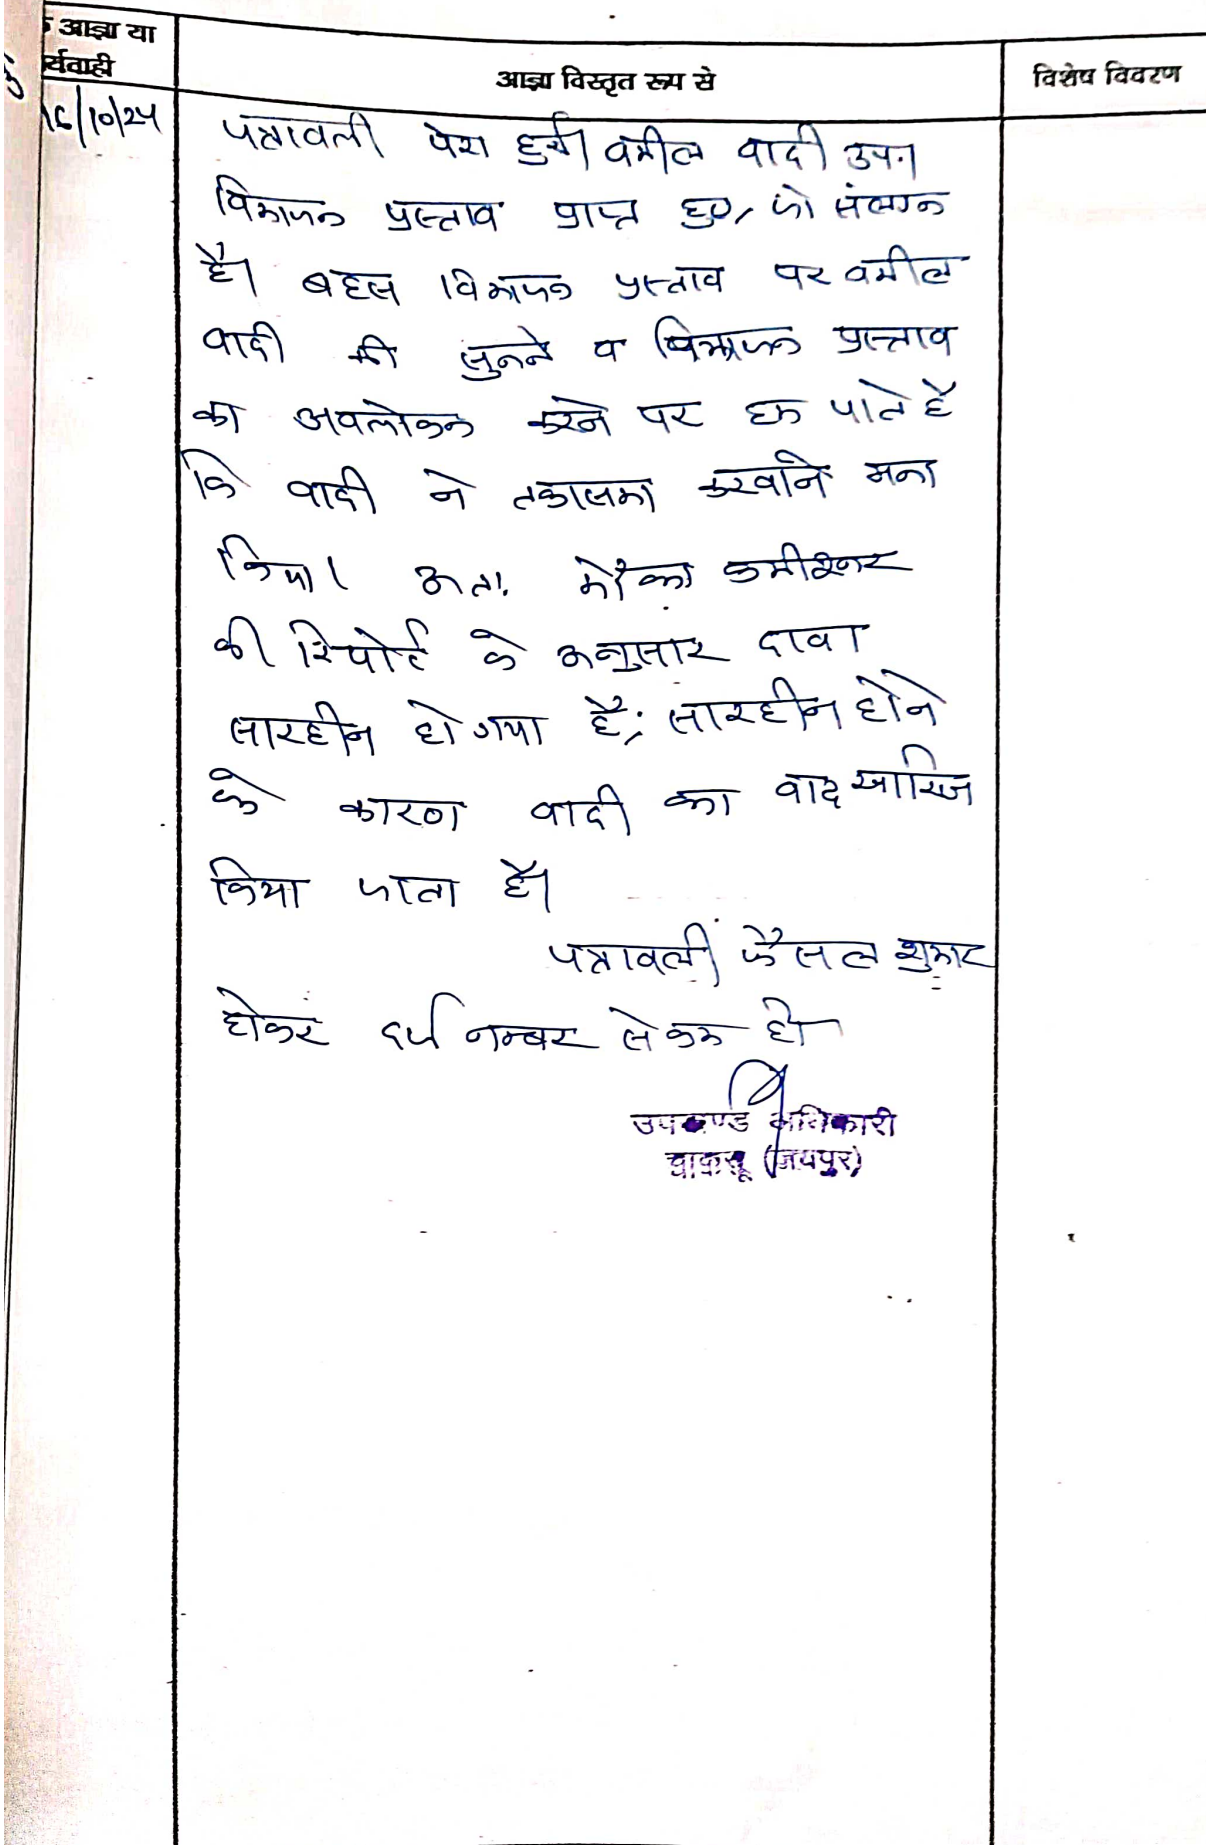 आज्ञा या
र्यवाही
आज्ञा विस्तृत रूप से
विशेष विवरण
16/10/24
पत्रावली पेश हुयी। वकील वादी उप.।
विभाजन प्रस्ताव प्राप्त हुए, जो संलग्न
है। बहस विभाजन प्रस्ताव पर वकील
वादी की सुनने व विभाजन प्रस्ताव
का अवलोकन करने पर हम पाते है
कि वादी ने तकासमा करवाने मना
किया। अतः मौका कमीश्नर
की रिपोर्ट के अनुसार दावा
सारहीन हो गया है; सारहीन होने
के कारण वादी का वाद खारिज
किया जाता है।
पत्रावली फैसल शुमार
होकर दर्ज नम्बर से कम हो
उपखण्ड अधिकारी
चाकसू (जयपुर)